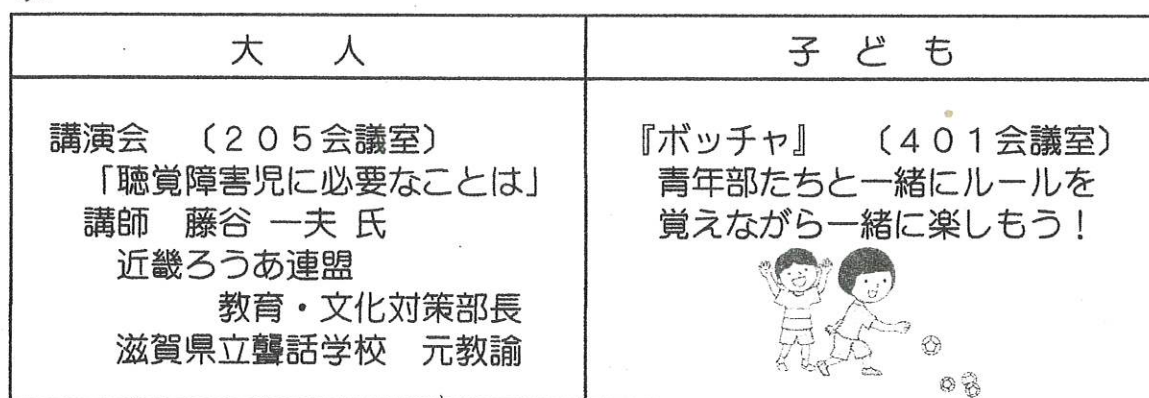 大 人
講演会 〔205会議室〕
「聴覚障害児に必要なことは」
講師 藤谷 一夫 氏
近畿ろうあ連盟
教育・文化対策部長
滋賀県立聾話学校 元教諭
子 ど も
『ボッチャ』 〔401会議室〕
青年部たちと一緒にルールを
覚えながら一緒に楽しもう！